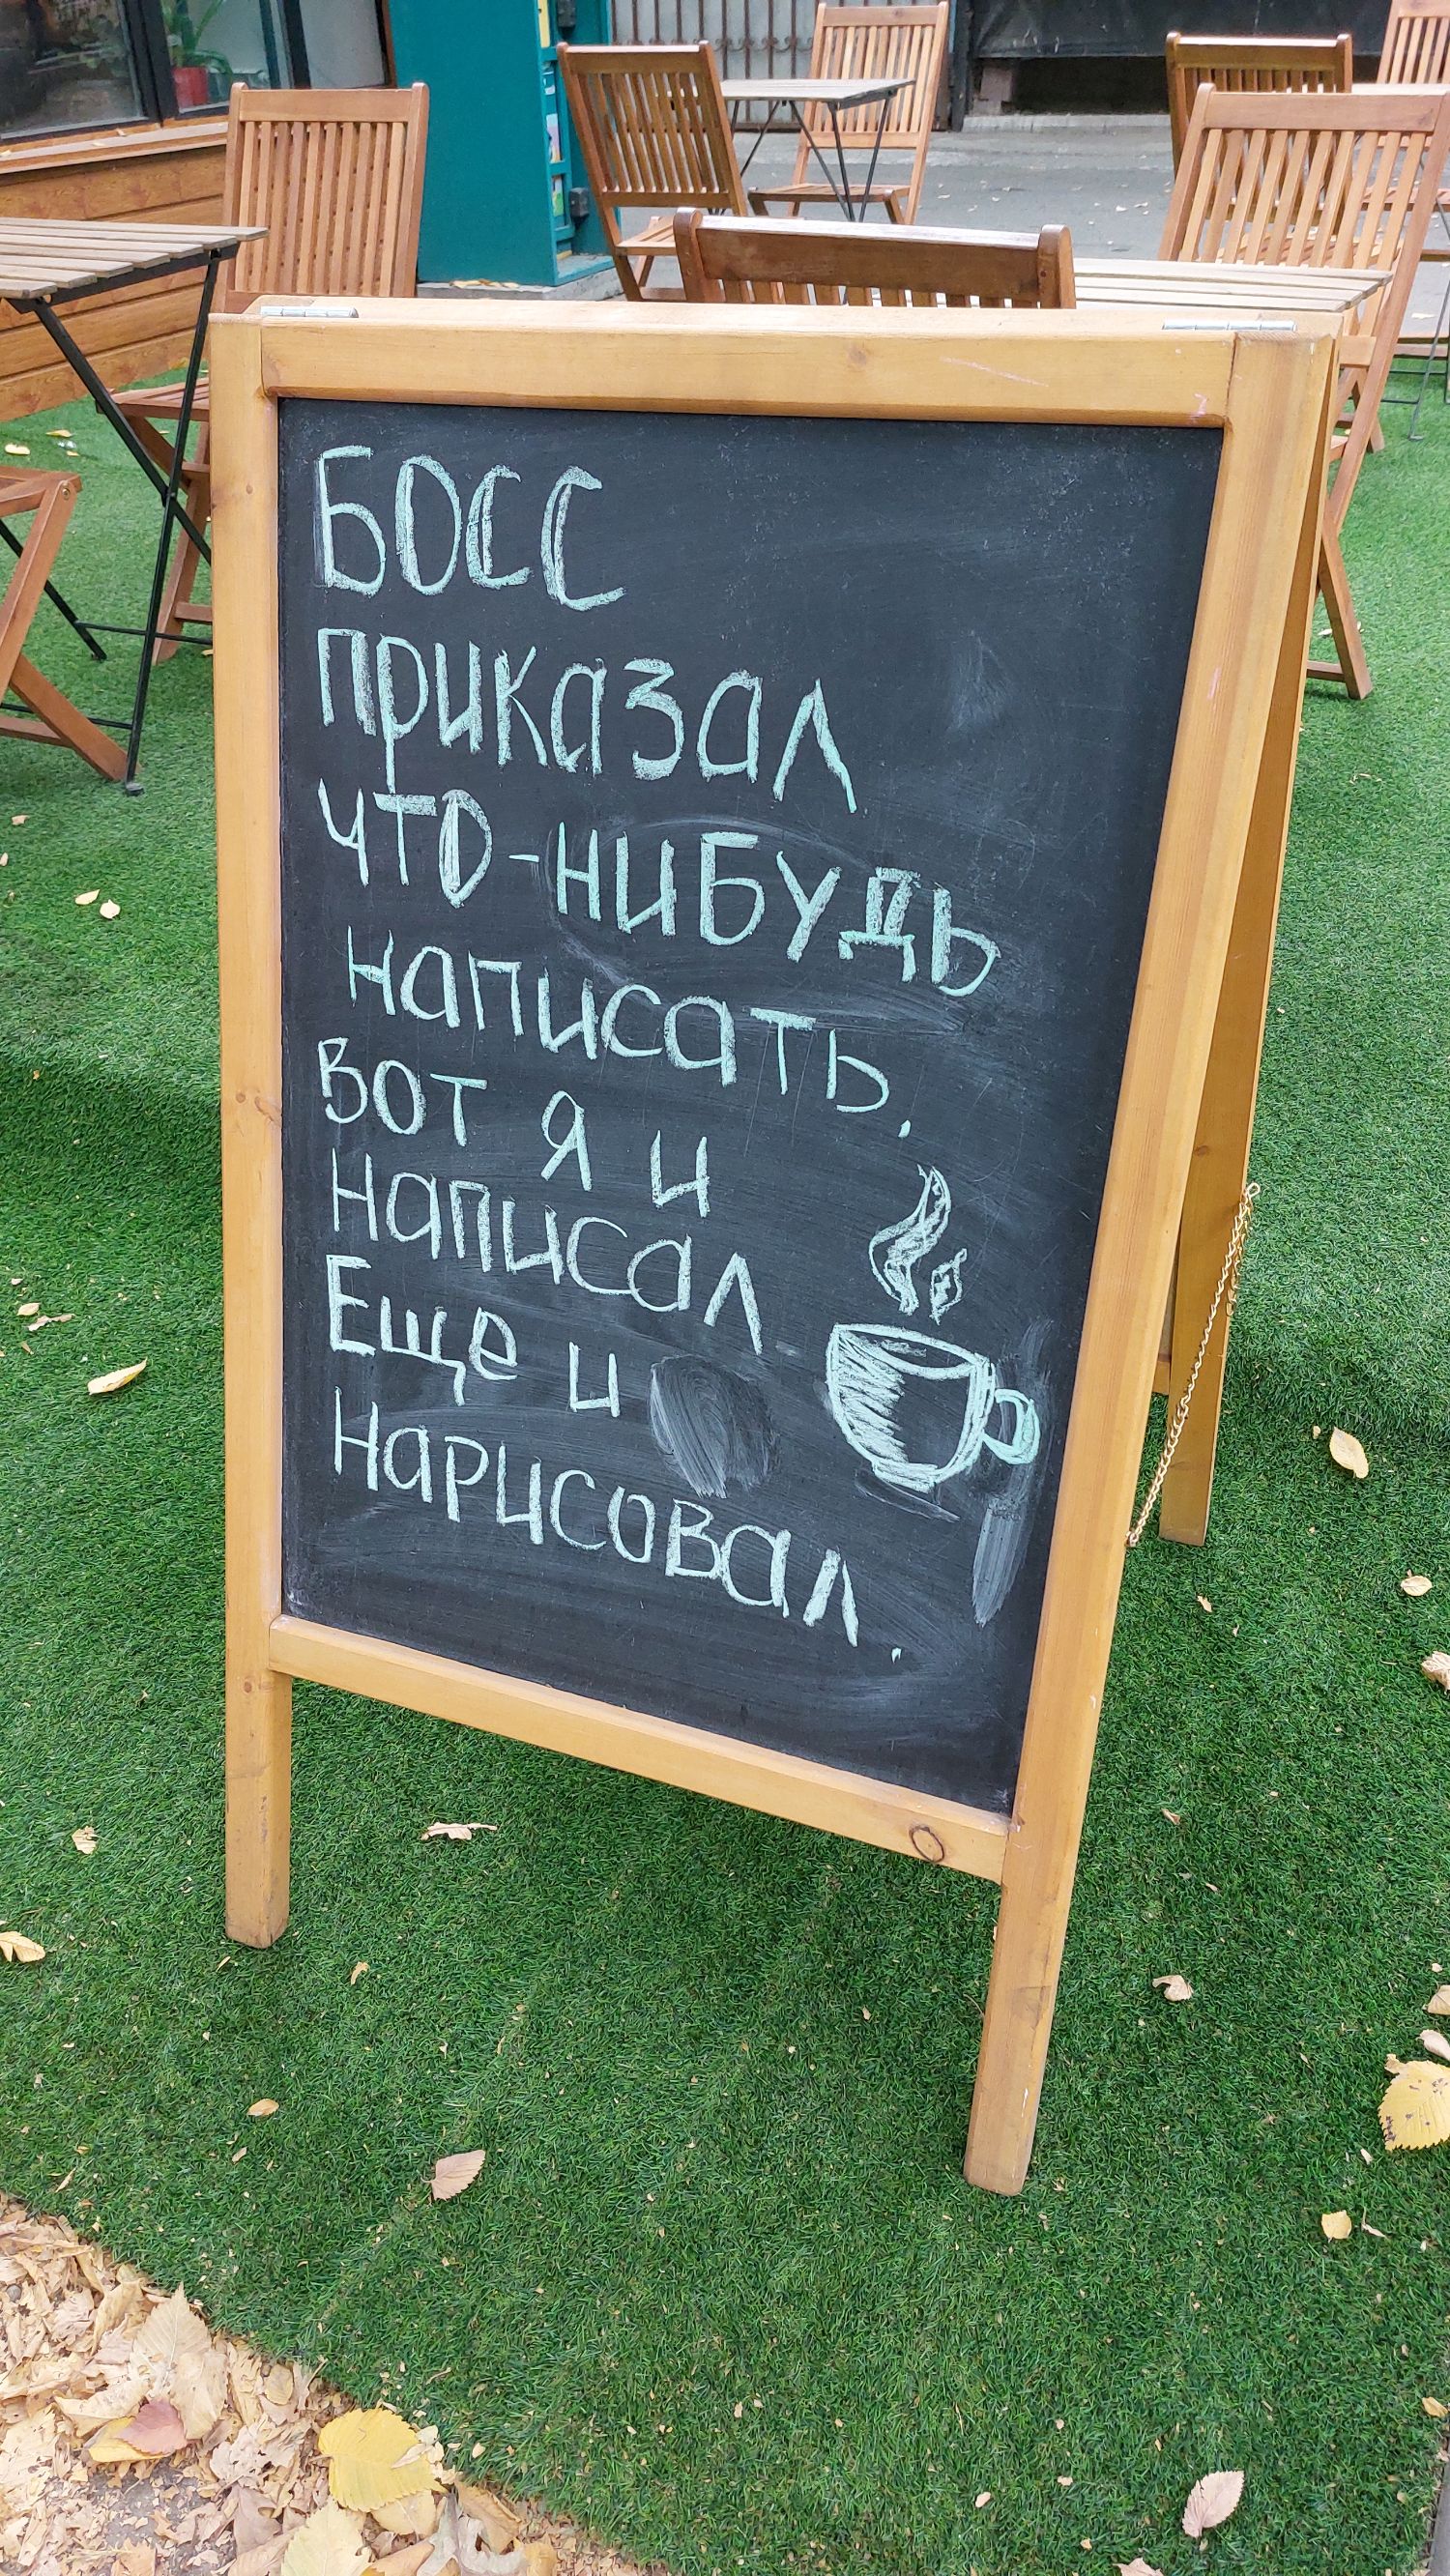 БОСС
приказал
что-нибудь
написать.
вот я и
написал
Еще и
нарисовал.